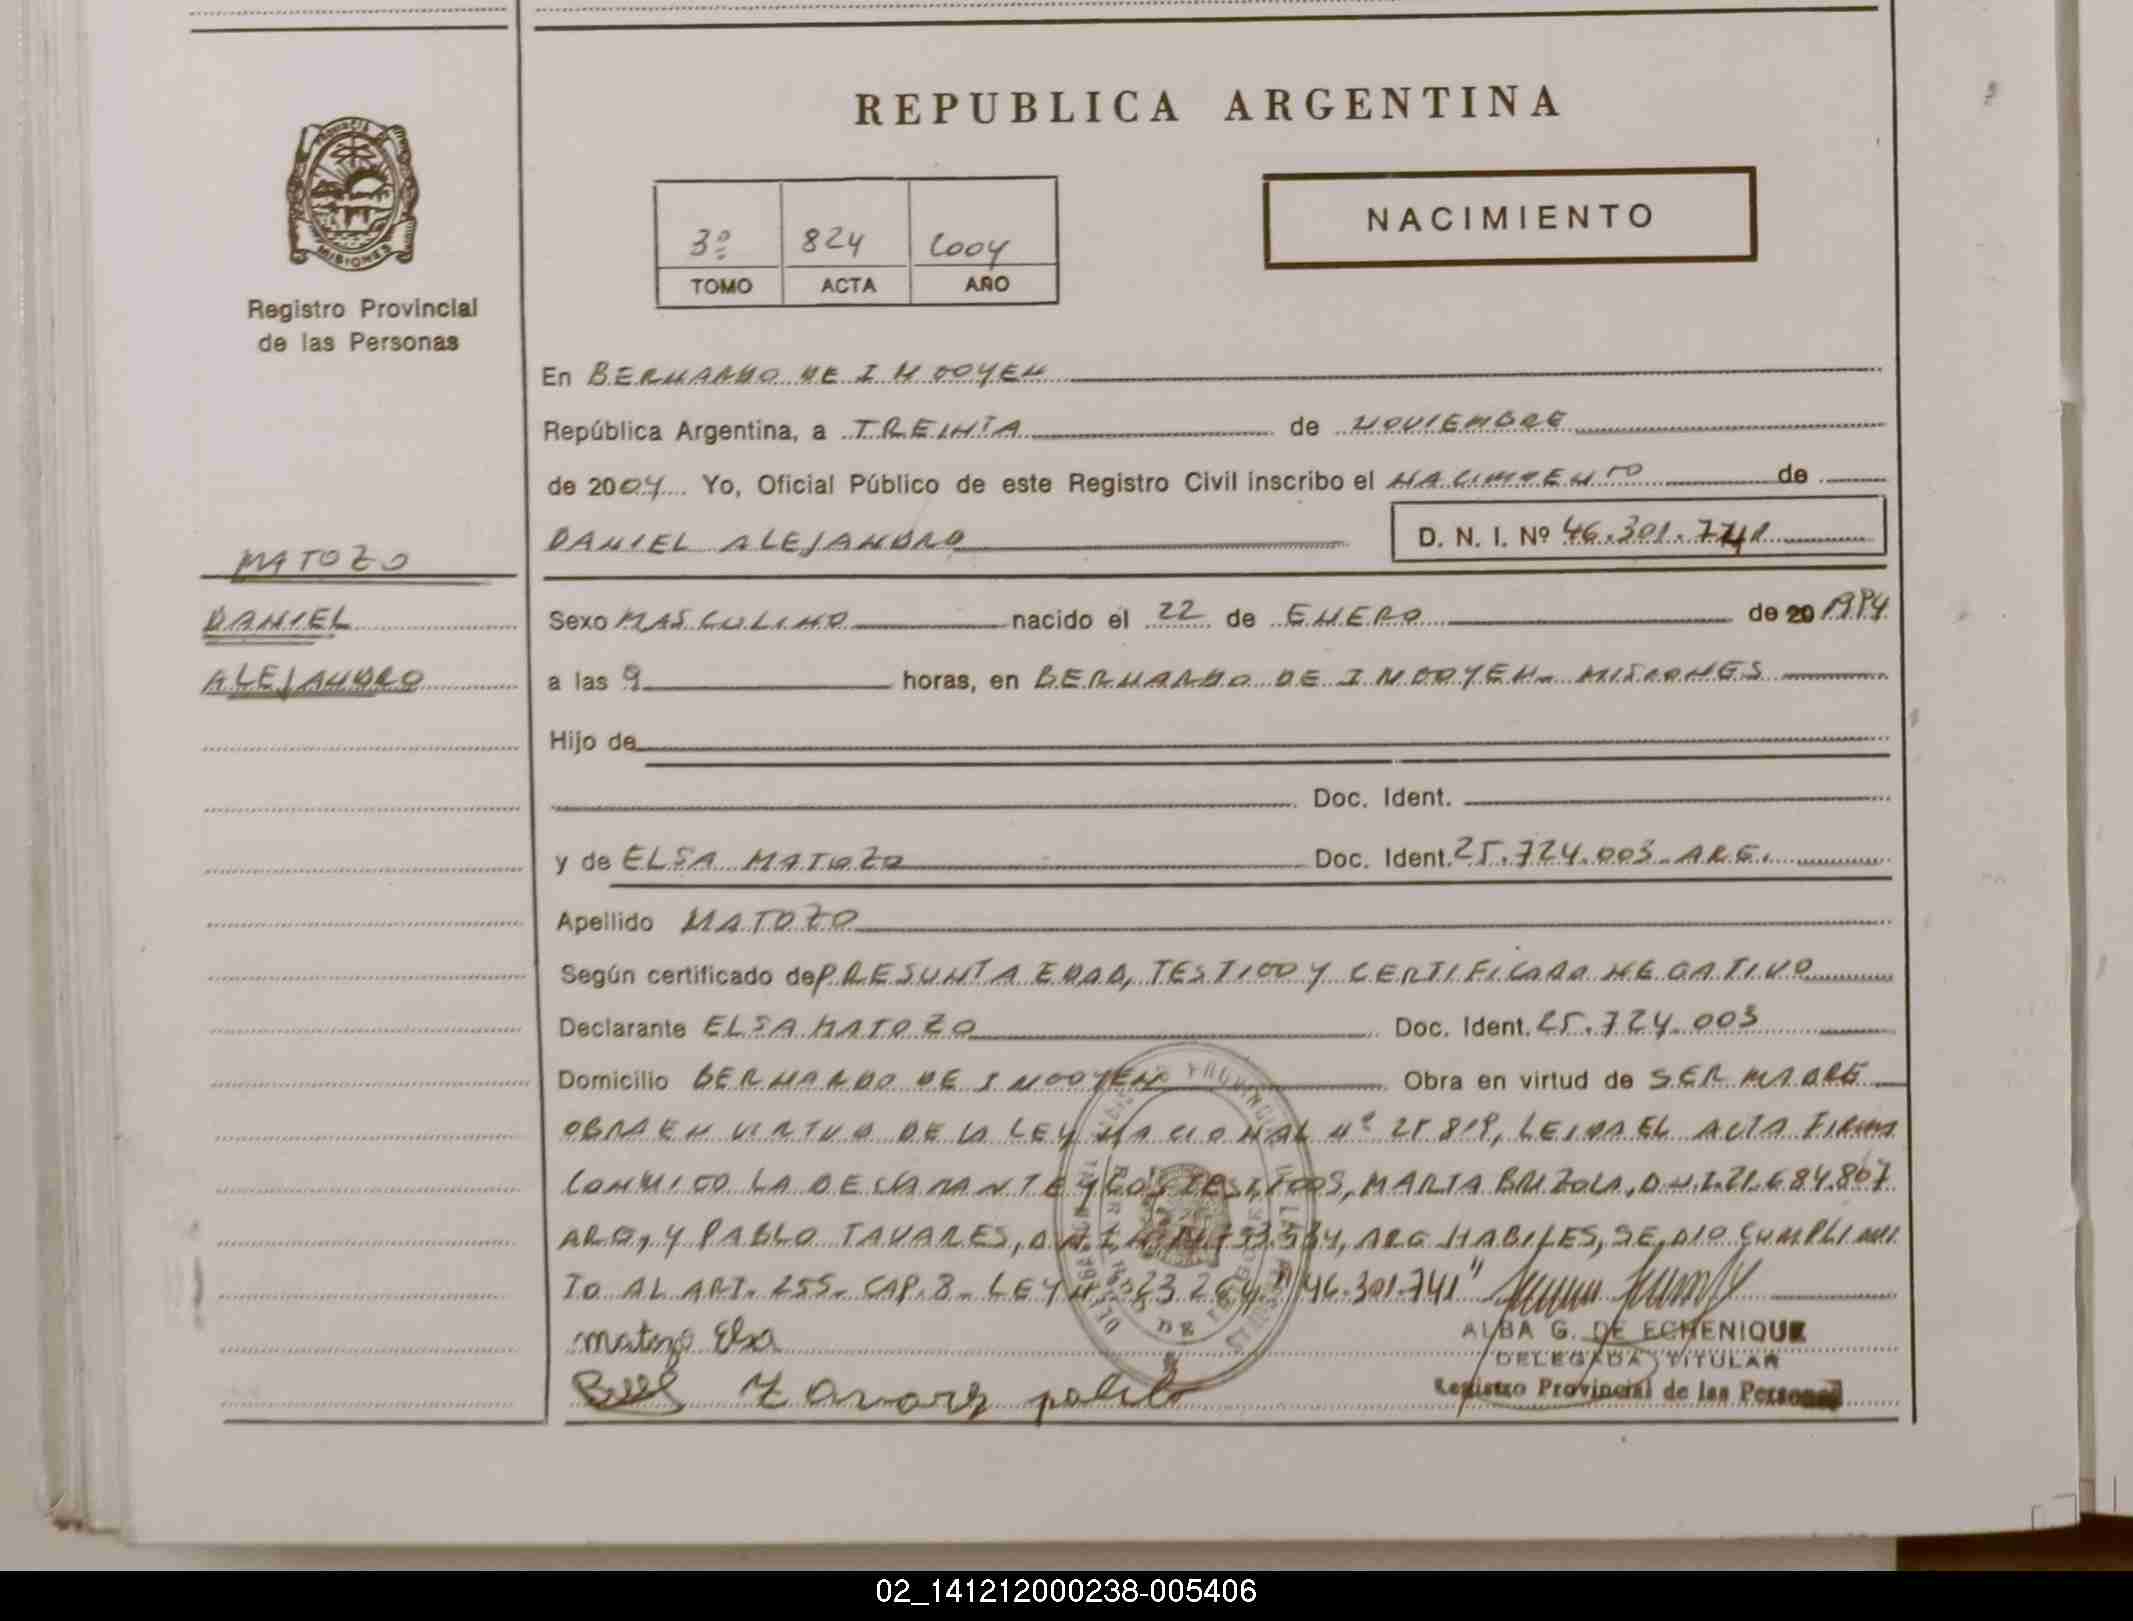 REPUBLICA ARGENTINA
PROVINCIA DE MISIONES
Registro Provincial
de las Personas
3º 824 2004
TOMO ACTA AÑO
NACIMIENTO
En BERNARDO DE IRIGOYEN
República Argentina, a TREINTA de NOVIEMBRE
de 2004 Yo, Oficial Público de este Registro Civil inscribo el NACIMIENTO de
DANIEL ALEJANDRO D. N. I. Nº 46.301.741
MATOZO
DANIEL
ALEJANDRO
Sexo MASCULINO nacido el 22 de ENERO de 20
a las 9 horas, en BERNARDO DE IRIGOYEN - MISIONES
Hijo de
Doc. Ident.
y de ELSA MATOZO Doc. Ident. 25.724.003 - ARG.
Apellido MATOZO
Según certificado de PRESUNTA EDAD, TESTIGO Y CERTIFICADO NEGATIVO
Declarante ELSA MATOZO Doc. Ident. 25.724.003
Domicilio BERNARDO DE IRIGOYEN Obra en virtud de SER MADRE
OBRA EN VIRTUD DE LA LEY NACIONAL Nº 25819, LEIDA EL ACTA FIRMA
CONMIGO LA DECLARANTE Y LOS TESTIGOS, MARTA BRIZOLA, D.N.I. 21.684.867
ARG, Y PABLO TAVARES, D.N.I. ARG HABILES, SE DIO CUMPLIMI
TO AL ART. 255 - CAP. 8 - LEY Nº 23.264 "46.301.741"
Matozo Elsa
Tavares pablo
ALBA G. DE ECHENIQUE
DELEGADA TITULAR
Registro Provincial de las Personas
02_141212000238-005406